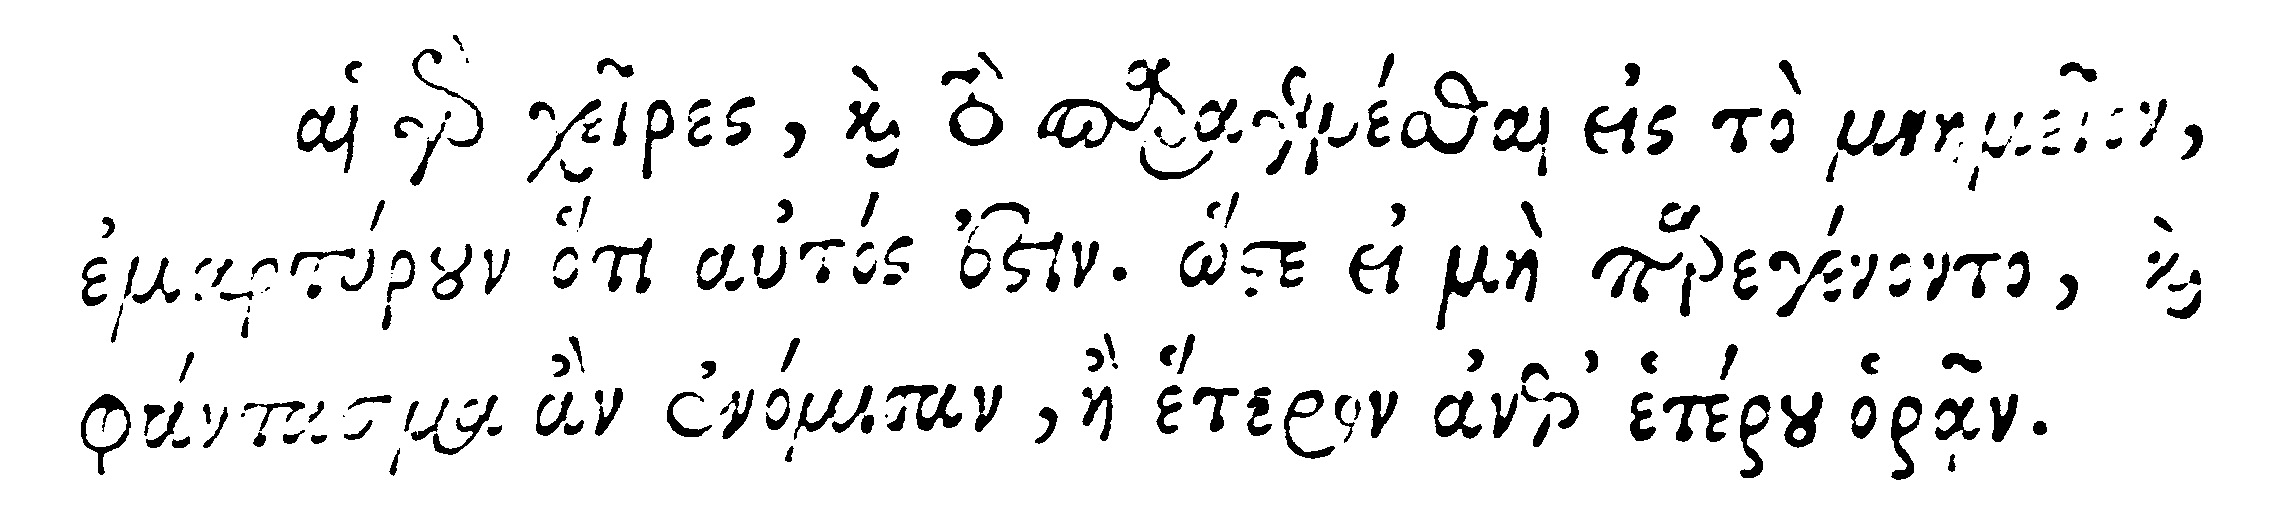 αἱ γὰρ χεῖρες, καὶ τὸ παραγενέσθαι εἰς τὸ μνημεῖον,
ἐμαρτύρουν ὅτι αὐτός ἐστιν. ὥστε εἰ μὴ παρεγένοντο, καὶ
φάντασμα ἂν ἐνόμισαν, ἢ ἕτερον ἀνθ' ἑτέρου ὁρᾷν.